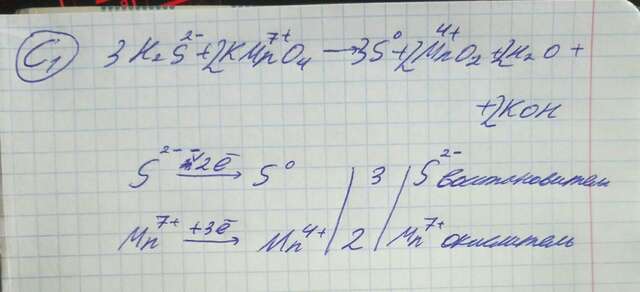 C1 3H₂S²⁻+2KMn⁷⁺O₄ → 3S⁰+2Mn⁴⁺O₂+2H₂O +
+2KOH
S²⁻ –2ē → S⁰ | 3 | S²⁻ восстановитель
Mn⁷⁺ +3ē → Mn⁴⁺ | 2 | Mn⁷⁺ окислитель